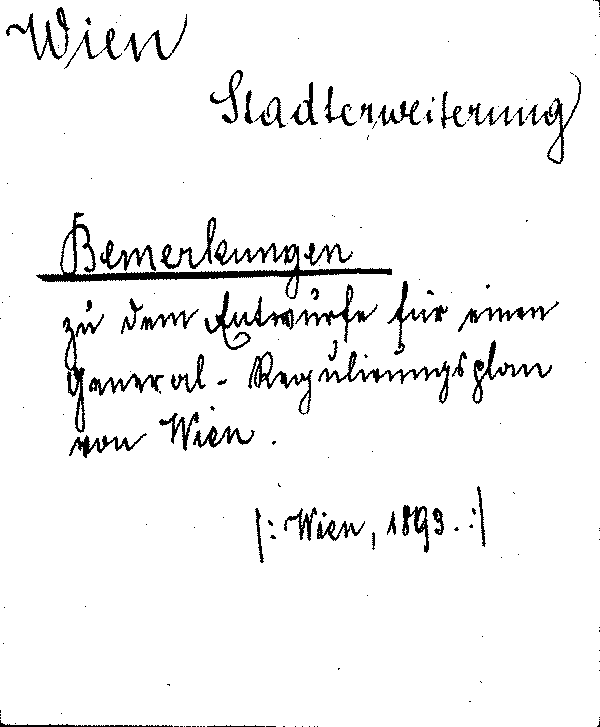 Wien
Stadterweiterung
Bemerkungen
zu dem Entwurfe für einen
General-Regulirungsplan
von Wien.
|: Wien, 1893. :|